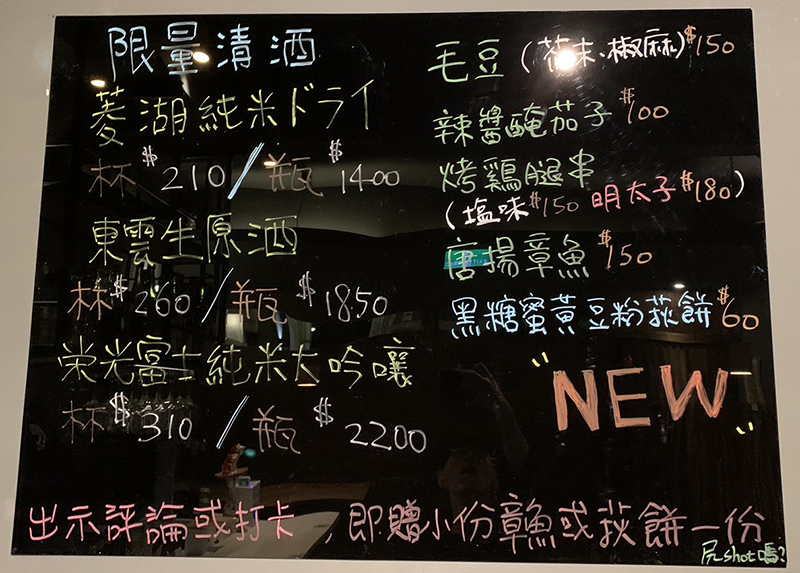 限量清酒
菱湖純米ドライ
杯$210/瓶$1400
東雲生原酒
杯$260/瓶$1850
栄光富士純米大吟嚷
杯$310/瓶$2200
毛豆(茶末、椒麻)$150
辣醬醃茄子$100
烤鶏腿串
(塩味$150 明太子$180)
唐揚章魚$150
黑糖蜜黃豆粉荻餅$60
"NEW"
出示評論或打卡,即贈小份章魚或荻餅一份
尻shot嗎?